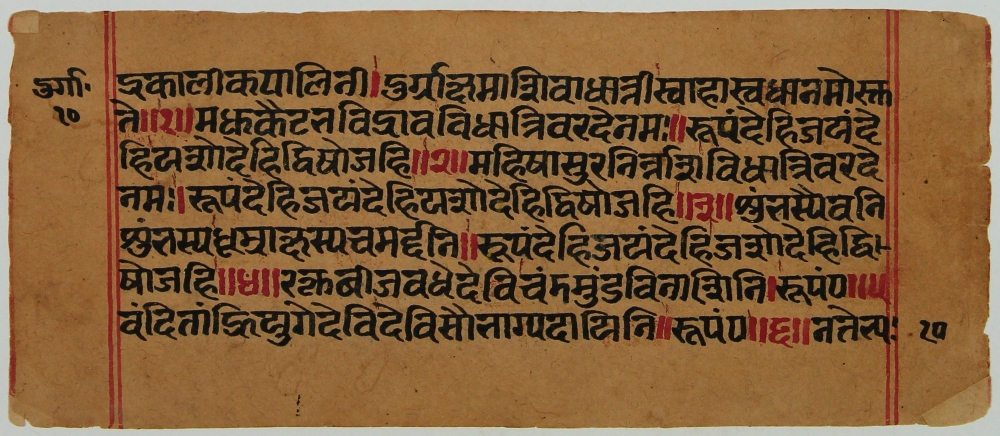 दुर्गा॰
१०
द्रकालीकपालिनी। दुर्गाक्षमाशिवाधात्रीस्वाहास्वधानमोस्तु
ते॥१॥ मधुकैटभविद्रावविधात्रिवरदेनमः॥ रूपंदेहिजयंदे
हियशोदेहिद्विषोजहि॥२॥ महिषासुरनिर्न्नाशिविधात्रिवरदे
नमः। रूपंदेहिजयंदेहियशोदेहिद्विषोजहि॥३॥ शुंभस्यैवनि
शुंभस्यधूम्राक्षस्यचमर्द्दनि॥ रूपंदेहिजयंदेहिजशोदेहिद्वि-
षोजहि॥४॥ रक्तबीजवधेदेविचंडमुंडविनाशिनि। रूपंप॥५
वंदितांह्रियुगेदेविदेविसौभाग्यदायिनि॥ रूपंप॥६॥ नतेभ्यः
१०